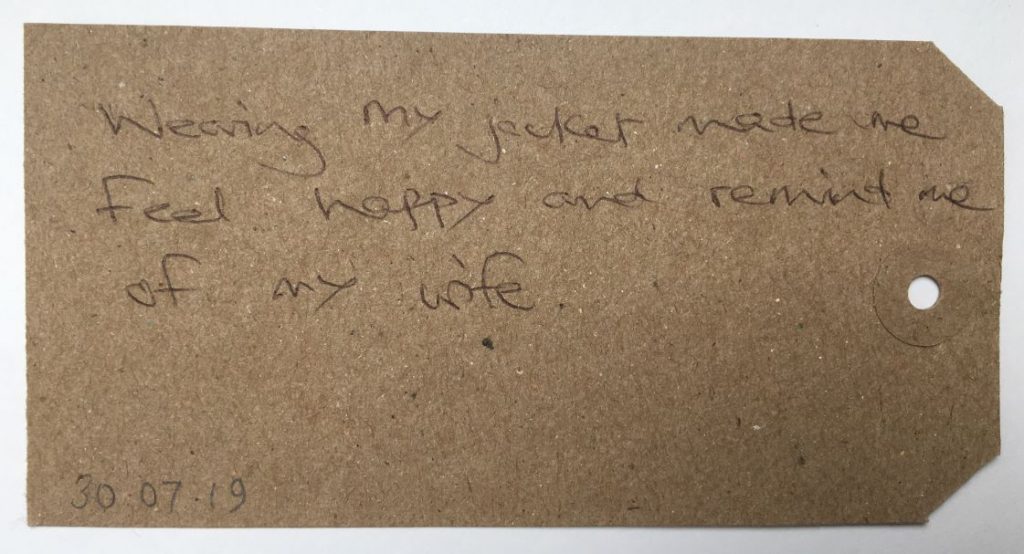 Wearing my jacket made me
Feel happy and remint me
of my wife.
30.07.19